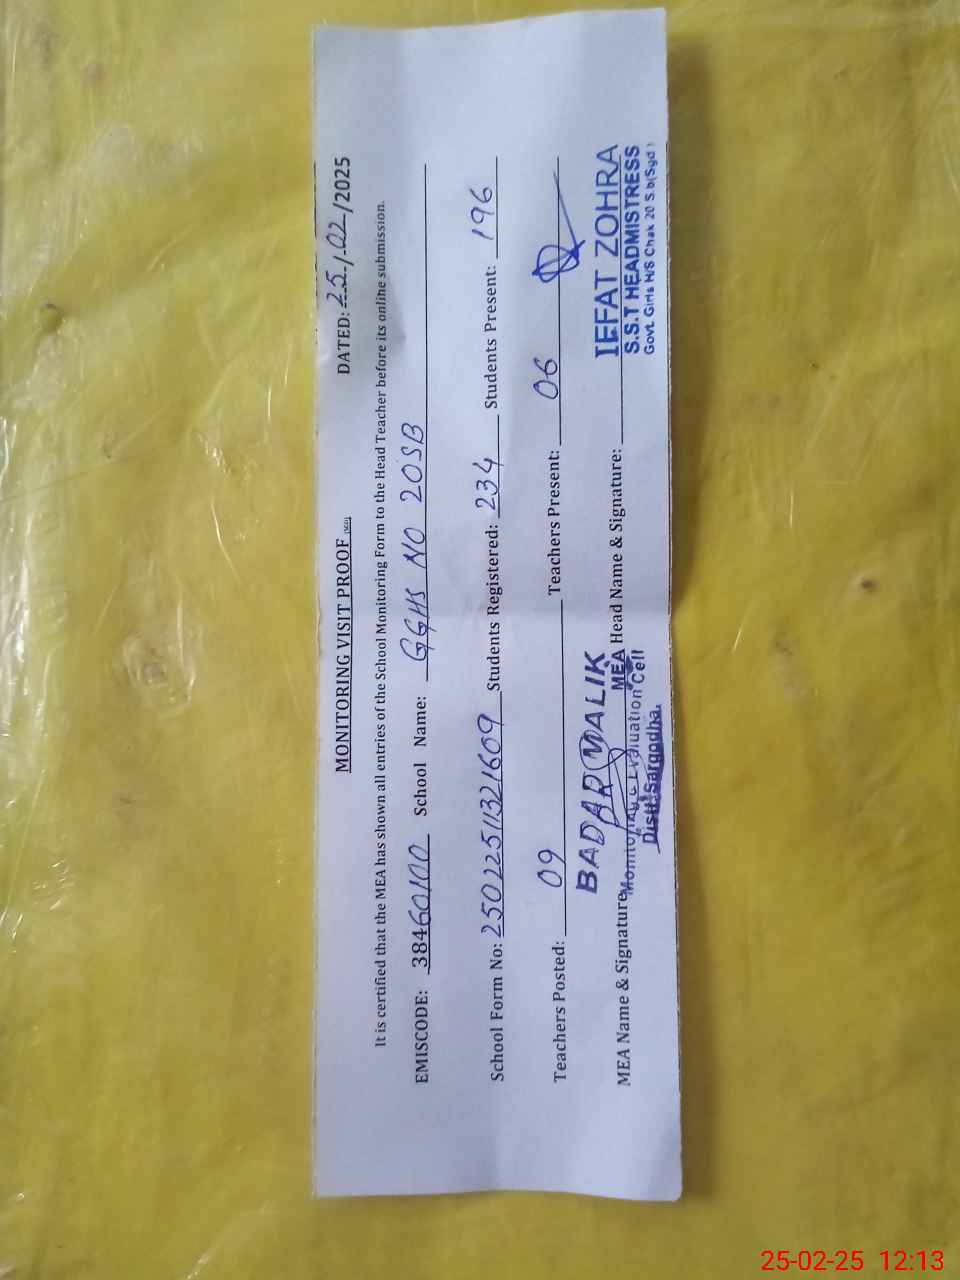 MONITORING VISIT PROOF
DATED: 25/02/2025
It is certified that the MEA has shown all entries of the School Monitoring Form to the Head Teacher before its online submission.
EMISCODE: 38460100 School Name: GGHS NO 20SB
School Form No: 25022511321609 Students Registered: 234 Students Present: 196
Teachers Posted: 09 Teachers Present: 06
BADAR MALIK
MEA Name & Signature MEA Head Name & Signature:
Monitoring & Evaluation Cell
Distt. Sargodha.
IEFAT ZOHRA
S.S.T HEADMISTRESS
Govt. Girls H/S Chak 20 S.b(Sgd)
25-02-25 12:13